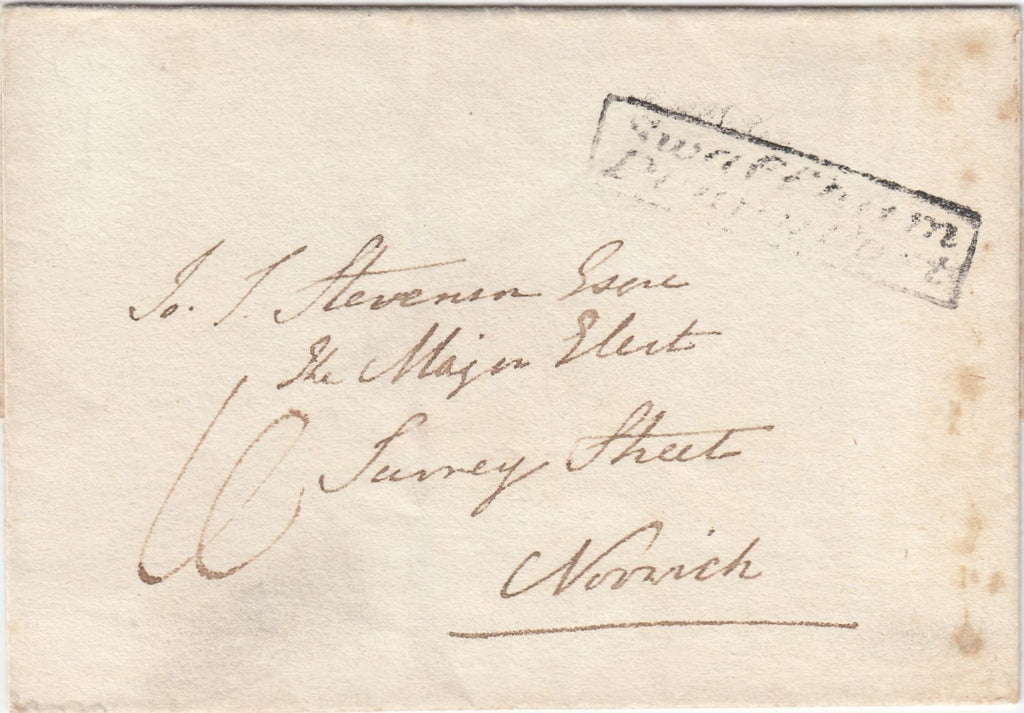 Swaffham
Penny Post
To. S. Stevenson Esqre
The Mayor Elect
Surrey Street
6
Norwich